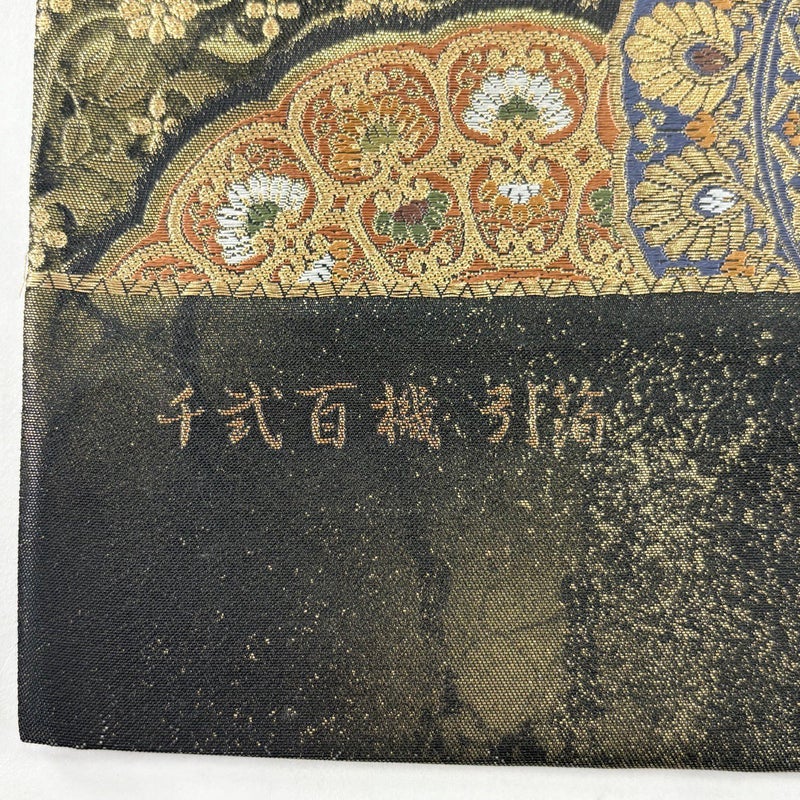 千弐百機 引箔